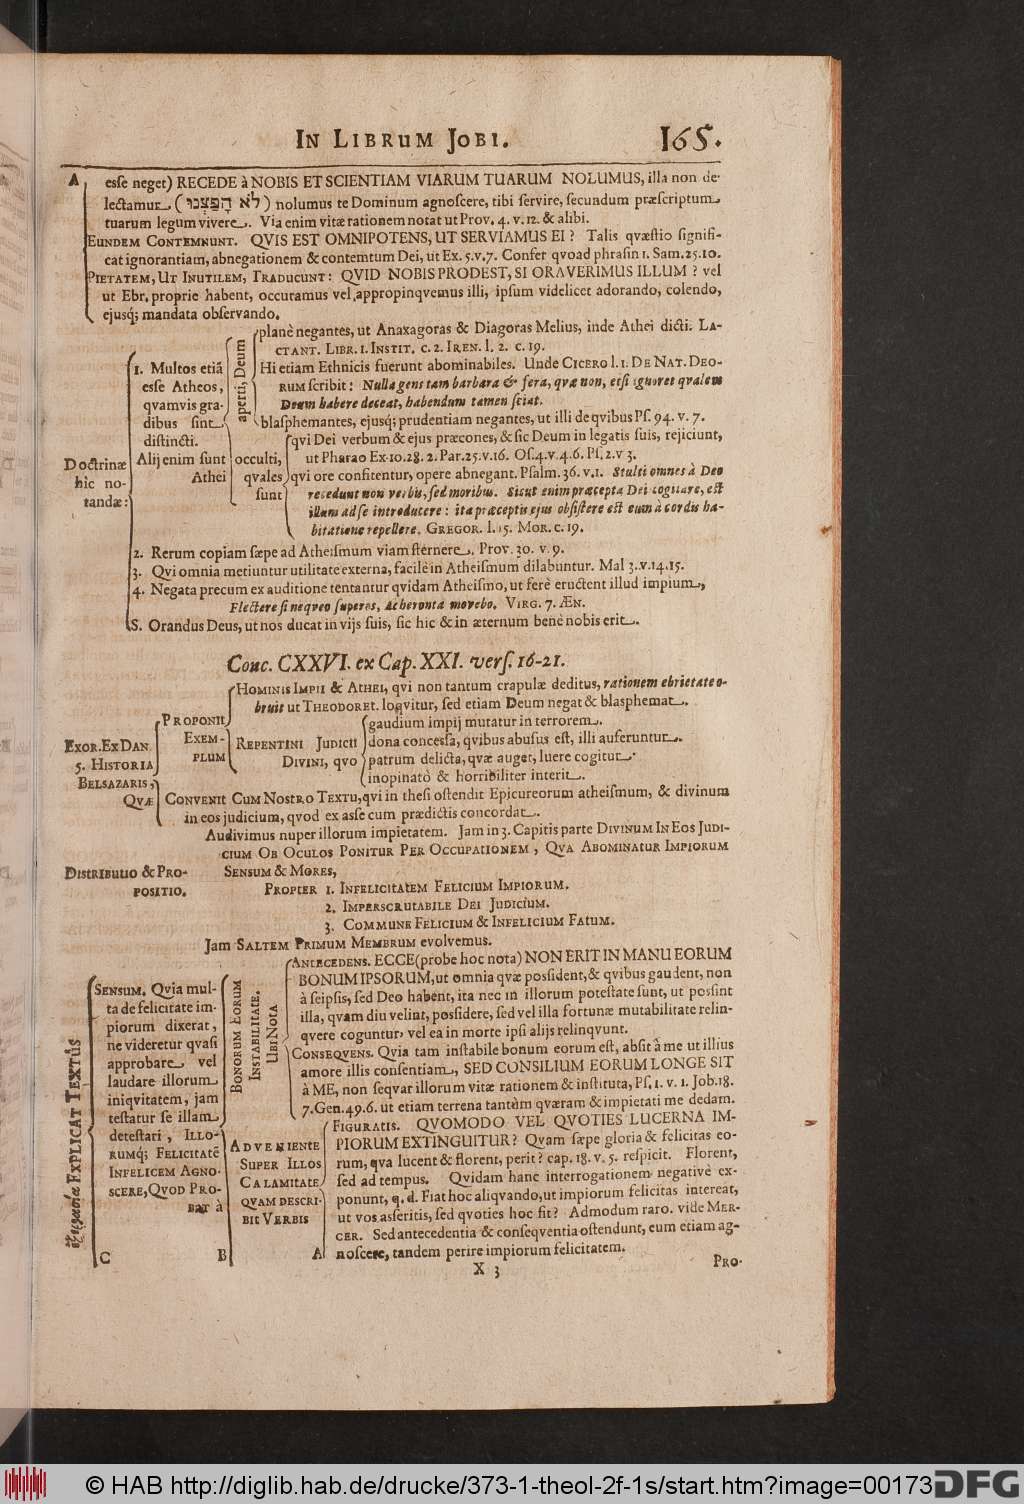 IN LIBRUM JOBI. 165.
A esse neget) RECEDE à NOBIS ET SCIENTIAM VIARUM TUARUM NOLUMUS, illa non de-
lectamur, (לֹא חָפַצְנוּ) nolumus te Dominum agnoscere, tibi servire, secundum præscriptum
tuarum legum vivere. Via enim vitæ rationem notat ut Prov. 4. v. 12. & alibi.
EUNDEM CONTEMNUNT. QVIS EST OMNIPOTENS, UT SERVIAMUS EI? Talis qvæstio signifi-
cat ignorantiam, abnegationem & contemtum Dei, ut Ex. 5. v. 7. Confer qvoad phrasin 1. Sam. 25. 10.
PIETATEM, UT INUTILEM, TRADUCUNT: QVID NOBIS PRODEST, SI ORAVERIMUS ILLUM? vel
ut Ebr. proprie habent, occuramus vel appropinqvemus illi, ipsum videlicet adorando, colendo,
ejusq; mandata observando.
Doctrinæ
hic no-
tandæ:
1. Multos etiã
esse Atheos,
qvamvis gra-
dibus sint
distincti.
Alij enim sunt
Athei
aperti, Deum
plane negantes, ut Anaxagoras & Diagoras Melius, inde Athei dicti. LA-
CTANT. LIBR. 1. INSTIT. c. 2. IREN. l. 2. c. 19.
Hi etiam Ethnicis fuerunt abominabiles. Unde CICERO l. 1. DE NAT. DEO-
RUM scribit: Nulla gens tam barbara & fera, qvæ non, etsi ignoret qvalem
Deum habere deceat, habendum tamen sciat.
blasphemantes, ejusq; prudentiam negantes, ut illi de qvibus Ps. 94. v. 7.
occulti,
qvales
sunt
qvi Dei verbum & ejus præcones, & sic Deum in legatis suis, rejiciunt,
ut Pharao Ex. 10. 28. 2. Par. 25. v. 16. Os. 4. v. 4. 6. Ps. 2. v 3.
qvi ore confitentur, opere abnegant. Psalm. 36. v. 1. Stulti omnes à Deo
recedunt non verbis, sed moribus. Sicut enim præcepta Dei cogitare, est
illum ad se introducere: ita præceptis ejus obsistere est eum à cordis ha-
bitatione repellere. GREGOR. l. 15. MOR. c. 19.
2. Rerum copiam sæpe ad Atheismum viam sternere. Prov. 30. v. 9.
3. Qvi omnia metiuntur utilitate externa, facilè in Atheismum dilabuntur. Mal 3. v. 14. 15.
4. Negata precum exauditione tentantur qvidam Atheismo, ut ferè eructent illud impium,
Flectere si neqveo superos, Acheronta movebo. VIRG. 7. ÆN.
5. Orandus Deus, ut nos ducat in vijs suis, sic hic & in æternum bene nobis erit.
Conc. CXXVI. ex Cap. XXI. vers. 16-21.
EXOR. EX DAN.
5. HISTORIA
BELSAZARIS,
QVÆ
PROPONIT
EXEM-
PLUM
HOMINIS IMPII & ATHEI, qvi non tantum crapulæ deditus, rationem ebrietate o-
bruit ut THEODORET. loqvitur, sed etiam Deum negat & blasphemat.
REPENTINI JUDICII
DIVINI, qvo
gaudium impij mutatur in terrorem.
dona concessa, qvibus abusus est, illi auferuntur.
patrum delicta, qvæ auget, luere cogitur.
inopinatò & horribiliter interit.
CONVENIT CUM NOSTRO TEXTU, qvi in thesi ostendit Epicureorum atheismum, & divinum
in eos judicium, qvod ex asse cum prædictis concordat.
DISTRIBUTIO & PRO-
POSITIO.
Audivimus nuper illorum impietatem. Jam in 3. Capitis parte DIVINUM IN EOS JUDI-
CIUM OB OCULOS PONITUR PER OCCUPATIONEM, QVA ABOMINATUR IMPIORUM
SENSUM & MORES,
PROPTER 1. INFELICITATEM FELICIUM IMPIORUM.
2. IMPERSCRUTABILE DEI JUDICIUM.
3. COMMUNE FELICIUM & INFELICIUM FATUM.
Jam SALTEM PRIMUM MEMBRUM evolvemus.
ἐξεργασία EXPLICAT TEXTÛS
SENSUM. Qvia mul-
ta de felicitate im-
piorum dixerat,
ne videretur qvasi
approbare vel
laudare illorum
iniqvitatem, jam
testatur se illam
detestari, ILLO-
RUMQ; FELICITATẼ
INFELICEM AGNO-
SCERE, QVOD PRO-
BAT à
BONORUM EORUM
INSTABILITATE.
UBI NOTA
ANTECEDENS. ECCE (probe hoc nota) NON ERIT IN MANU EORUM
BONUM IPSORUM, ut omnia qvæ possident, & qvibus gaudent, non
à seipsis, sed Deo habent, ita nec in illorum potestate sunt, ut possint
illa, qvam diu velint, possidere, sed vel illa fortunæ mutabilitate relin-
qvere coguntur, vel ea in morte ipsi alijs relinqvunt.
CONSEQVENS. Qvia tam instabile bonum eorum est, absit à me ut illius
amore illis consentiam, SED CONSILIUM EORUM LONGE SIT
à ME, non seqvar illorum vitæ rationem & instituta, Ps. 1. v. 1. Job. 18.
7. Gen. 49. 6. ut etiam terrena tantùm qværam & impietati me dedam.
ADVENIENTE
SUPER ILLOS
CALAMITATE
QVAM DESCRI-
BIT VERBIS
FIGURATIS. QVOMODO VEL QVOTIES LUCERNA IM-
PIORUM EXTINGUITUR? Qvam sæpe gloria & felicitas eo-
rum, qva lucent & florent, perit? cap. 18. v. 5. respicit. Florent,
sed ad tempus. Qvidam hanc interrogationem negativè ex-
ponunt, q. d. Fiat hoc aliqvando, ut impiorum felicitas intereat,
ut vos asseritis, sed qvoties hoc fit? Admodum raro. vide MER-
CER. Sed antecedentia & conseqventia ostendunt, eum etiam ag-
noscere, tandem perire impiorum felicitatem.
C B A
X 3
PRO-
© HAB http://diglib.hab.de/drucke/373-1-theol-2f-1s/start.htm?image=00173
DFG